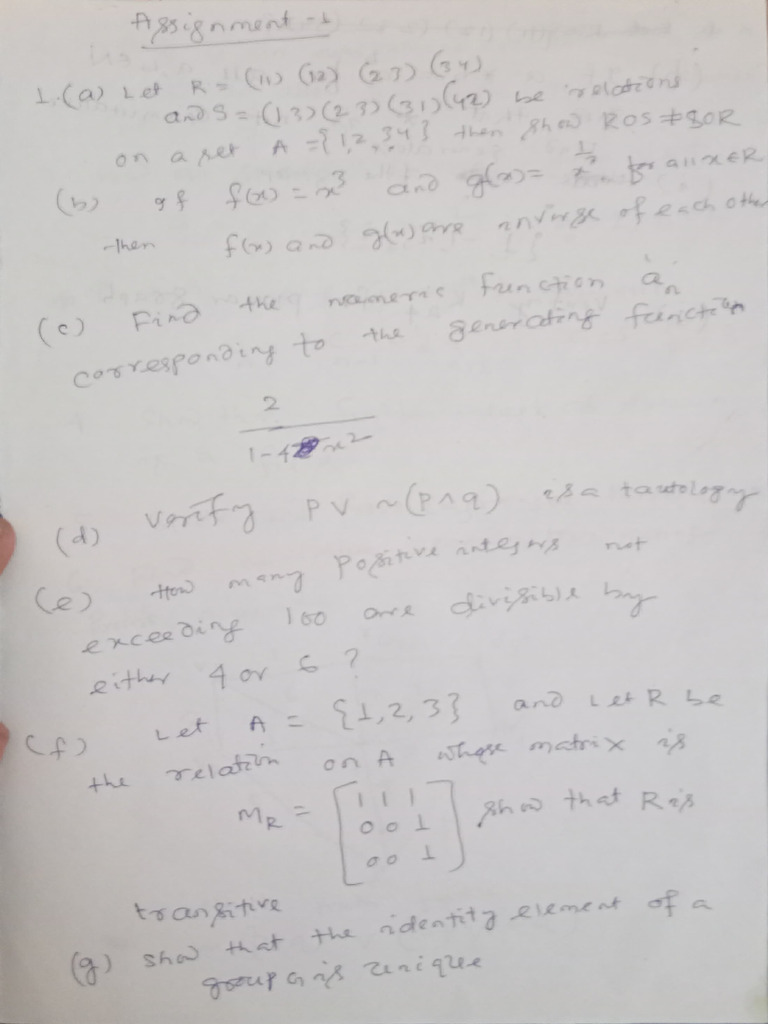 Assignment -1
1.(a) Let R = (11) (12) (23) (34)
and S = (13) (23) (31) (42) be relations
on a set A = {1,2,3,4} then show ROS ≠ SOR
(b) If f(x) = x³ and g(x) = x^(1/3) for all x ∈ R
then f(x) and g(x) are inverse of each other
(c) Find the numeric function aₙ
corresponding to the generating function
2
1-4x²
(d) Verify P V ~(P ∧ q) is a tautology
(e) How many Positive integers not
exceeding 100 are divisible by
either 4 or 6 ?
(f) Let A = {1,2,3} and Let R be
the relation on A whose matrix is
M_R = [1 1 1
0 0 1
0 0 1] show that R is
transitive
(g) show that the identity element of a
group G is unique